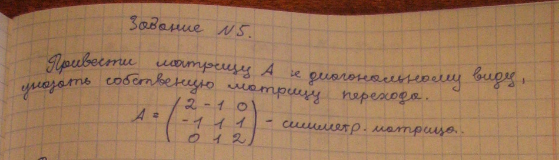 Задание №5.
Привести матрицу А к диагональному виду,
указать собственную матрицу перехода.
2 -1 0
А = ( -1 1 1 ) - симметр. матрица.
0 1 2